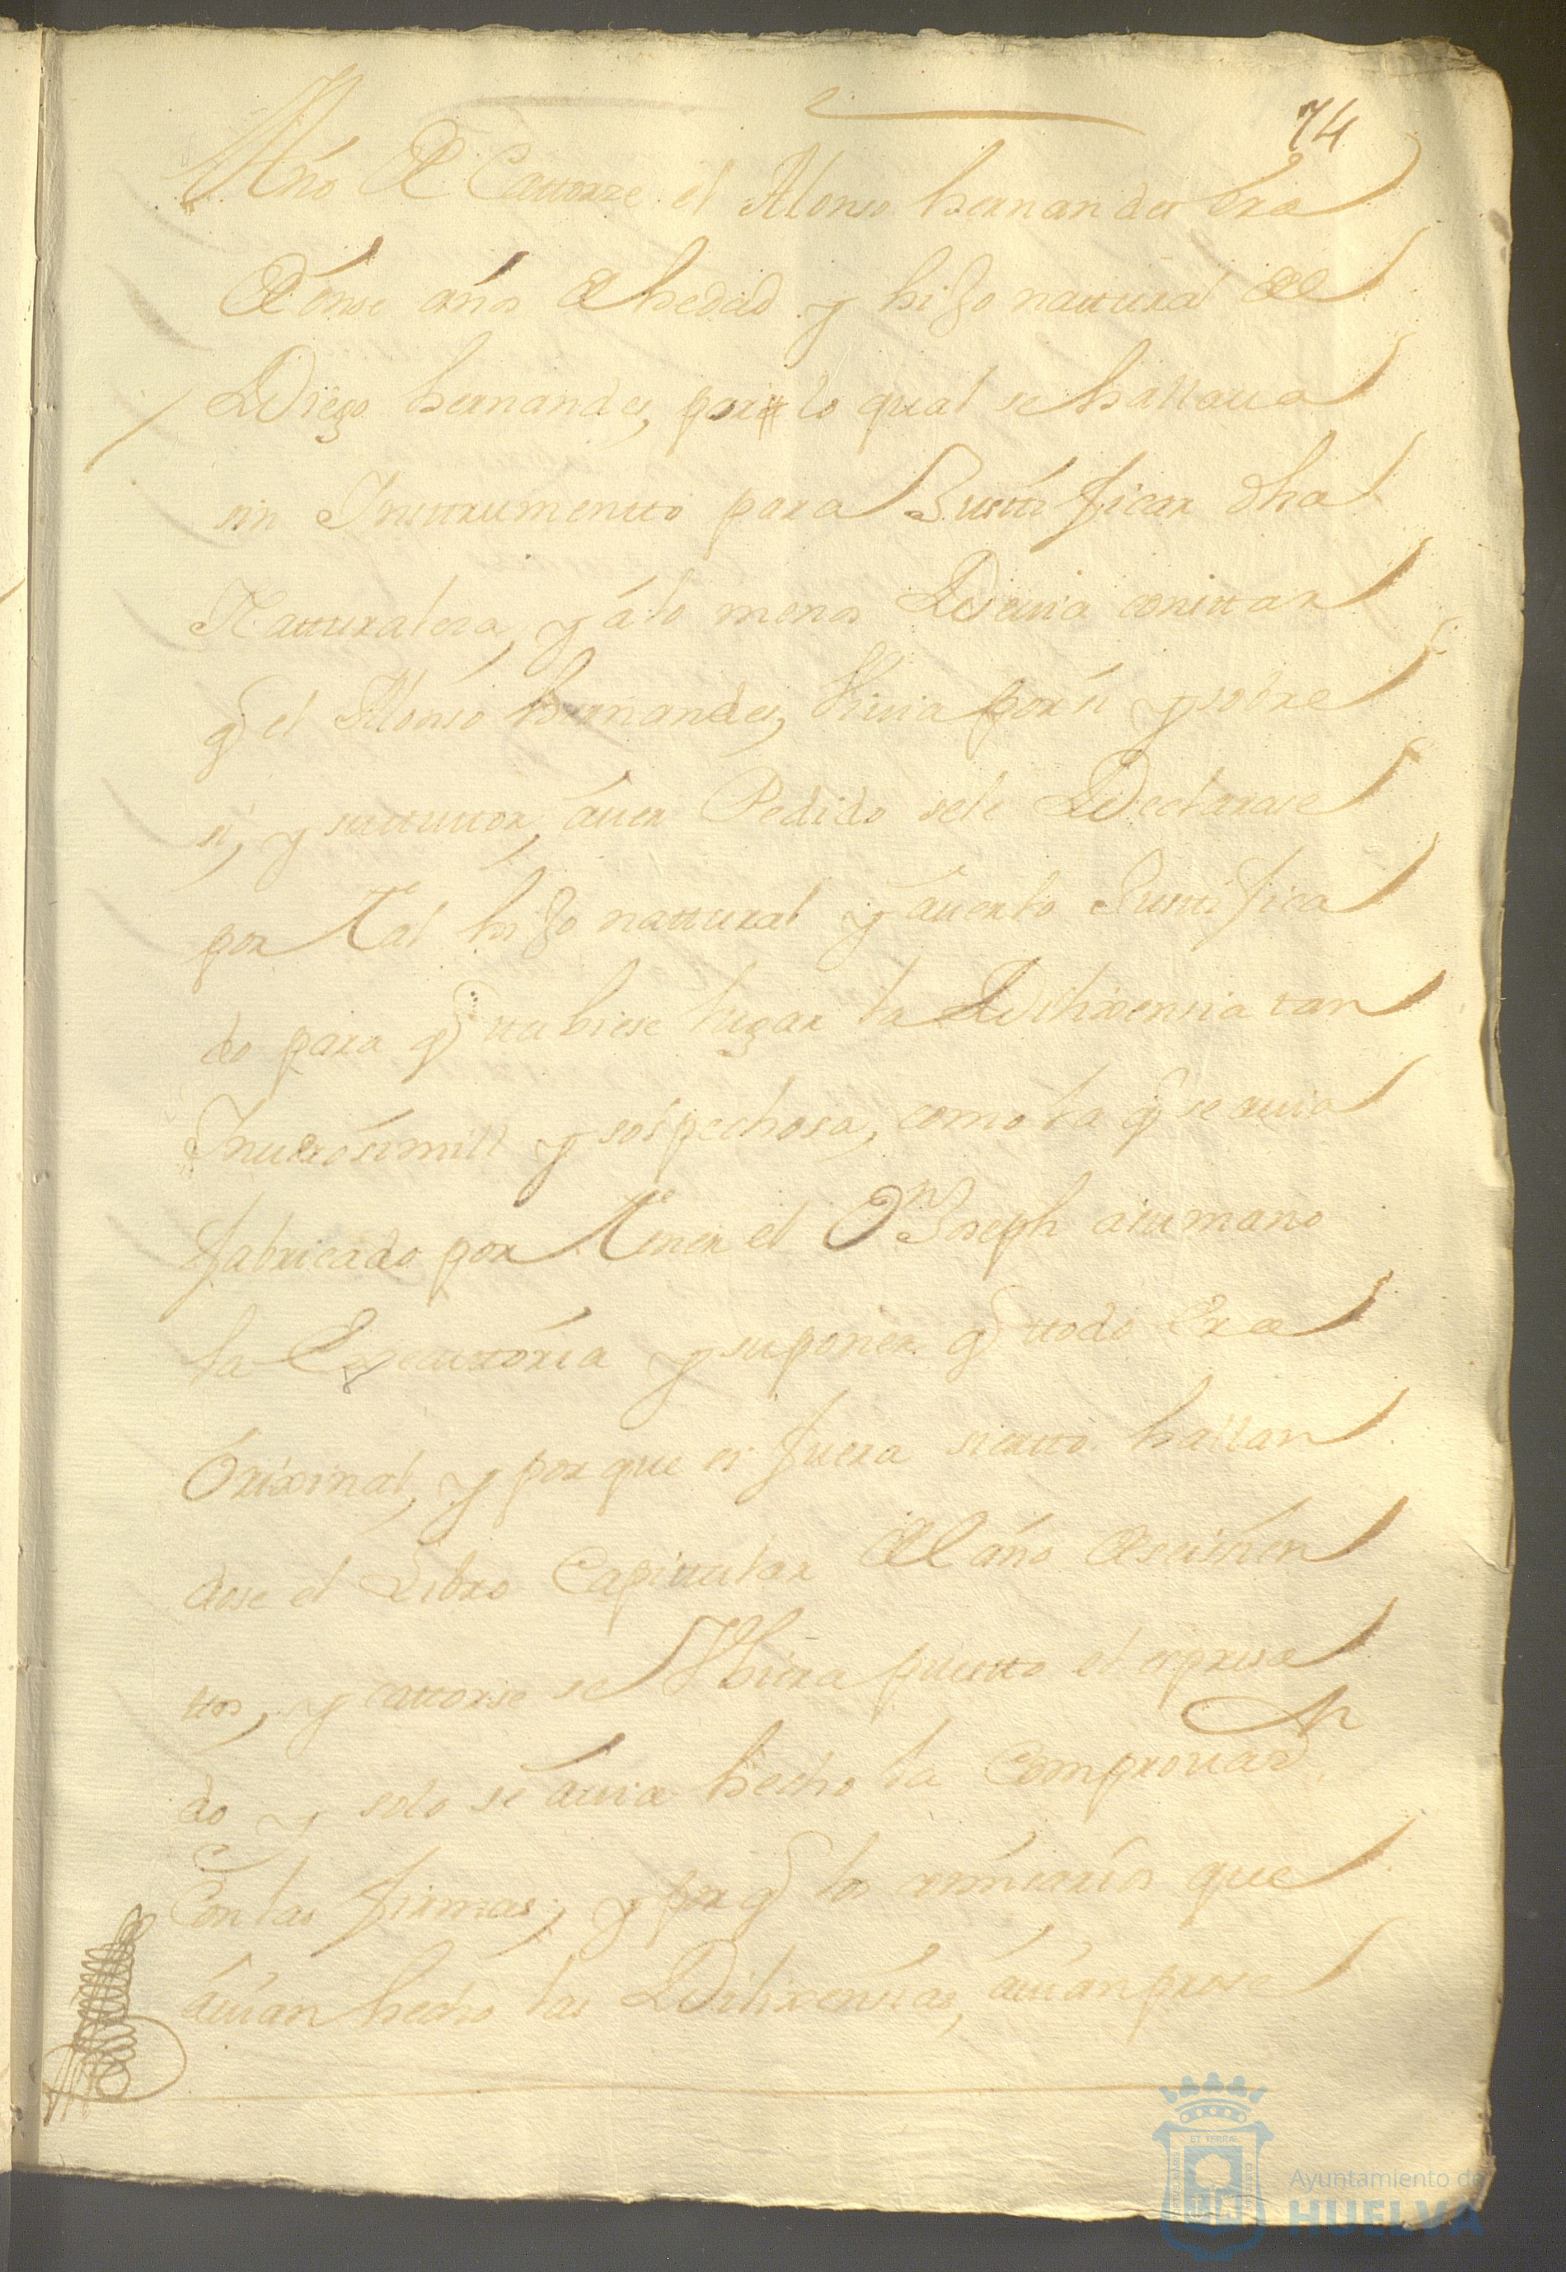 74
Año de Cattorze el Alonso hernandez Era
de onse años de hedad y hijo nattural de
Diego hernandez, para lo qual se hallaua
sin Insttrumentto para Justtificar dha
Natturalesa, y a lo menos Deuia consttar
q̃ el Alonso hernandez, Viuia por si y sobre
si, y su tuttor, auer Pedido sele Declarase
por tal hijo nattural y auerlo Justtifica
do para q̃ ttubiese lugar la Dilixensia tan
Inuerosimill y sospechosa, como la q̃ se auia
fabricado por tener el Dn Joseph a su mano
la Executtoria y suponer q̃ ttodo Era
Orixinal, y por que si fuera siertto hallan
dose el Libro Capittular del año de seisien
ttos, y cattorse se Vbiera puestto el espresa
do y solo se auia hecho la Comprouaon
Con las firmas, y por q̃ los que
auian hecho las Dilixensias, auian prose
Ayuntamiento de
HUELVA